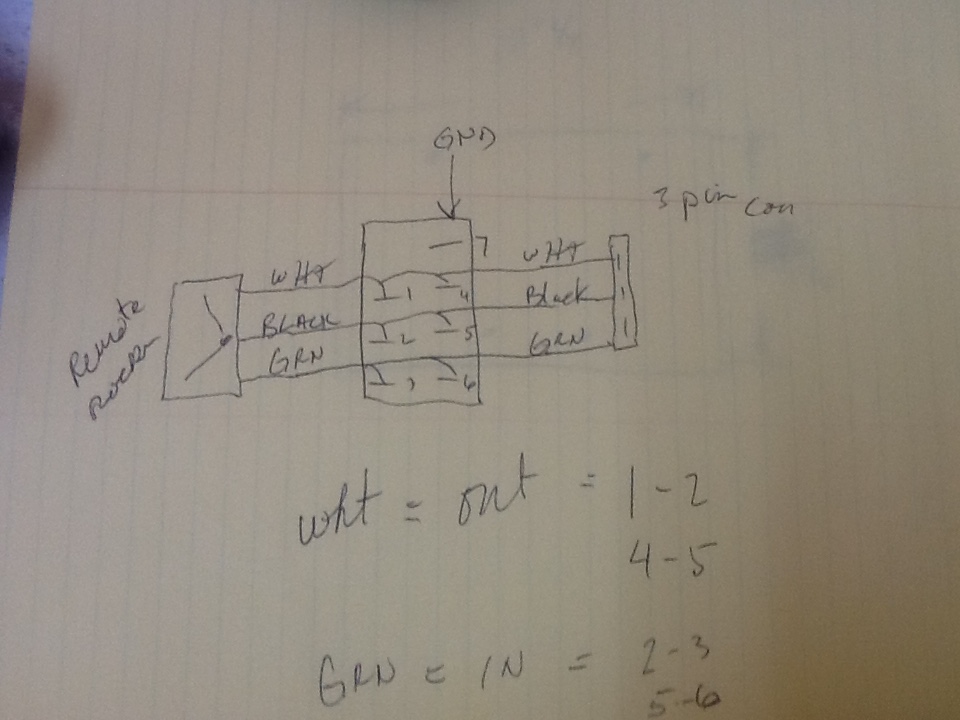 GND
3 pin con
7
WHT
WHT
1
4
Black
BLACK
2
5
GRN
GRN
3
6
Remote
Rocker
wht = out = 1-2
4-5
GRN = IN = 2-3
5-6